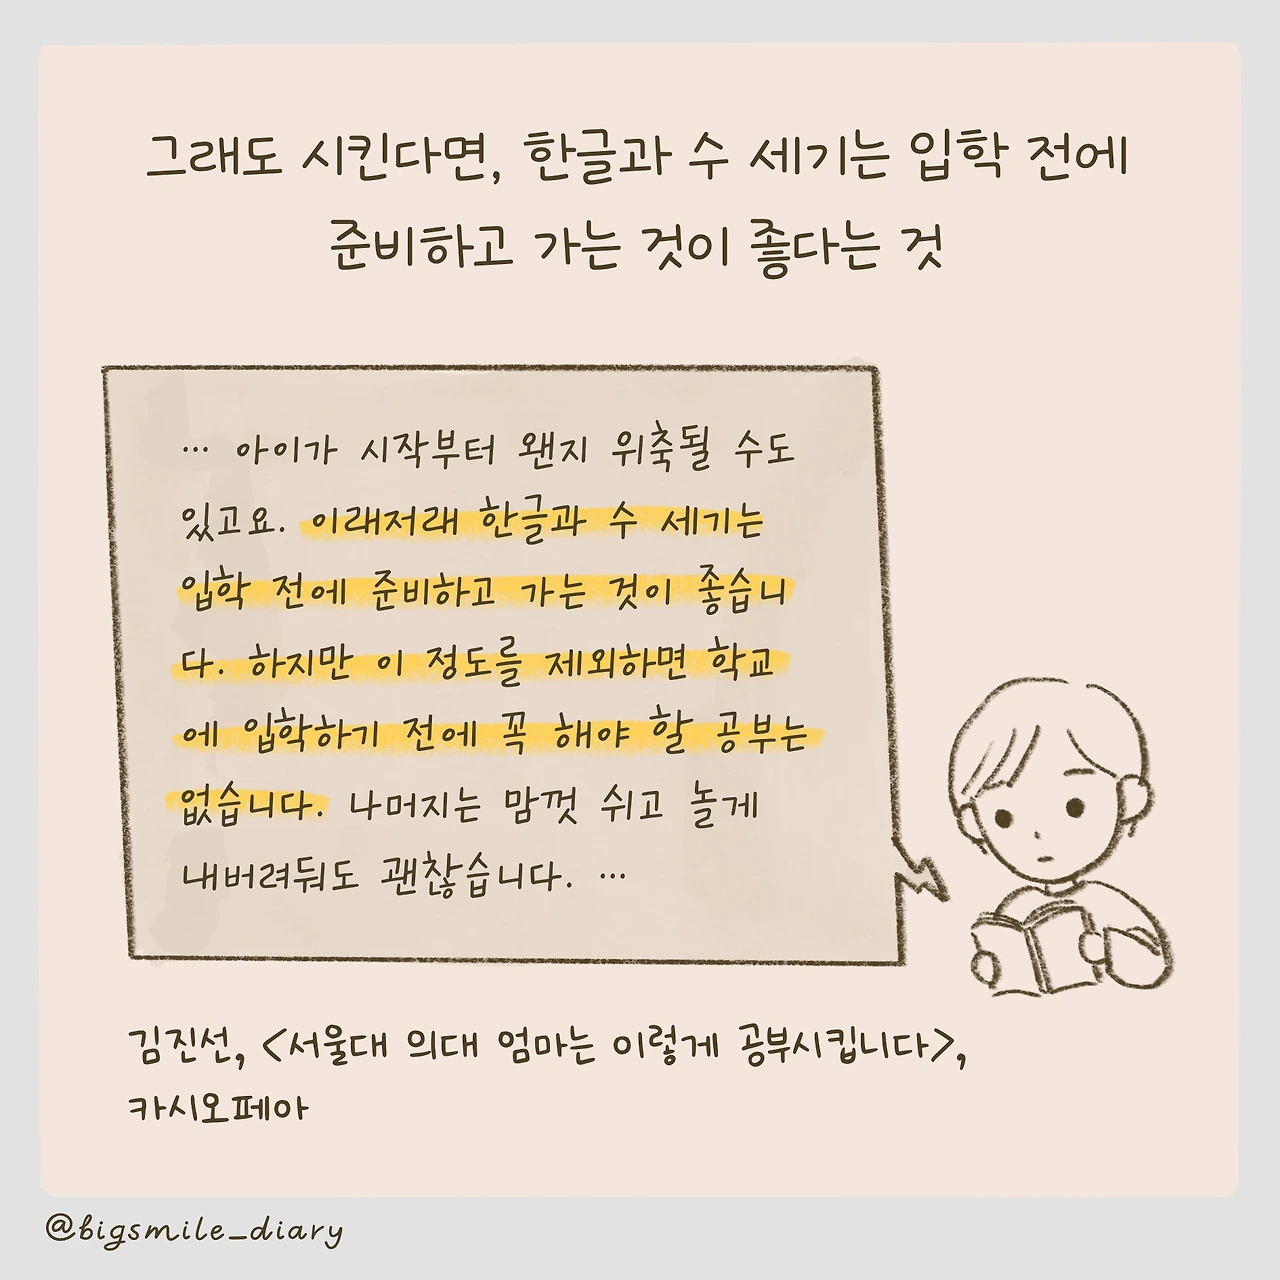 그래도 시킨다면, 한글과 수 세기는 입학 전에
준비하고 가는 것이 좋다는 것
… 아이가 시작부터 왠지 위축될 수도
있고요. 이래저래 한글과 수 세기는
입학 전에 준비하고 가는 것이 좋습니
다. 하지만 이 정도를 제외하면 학교
에 입학하기 전에 꼭 해야 할 공부는
없습니다. 나머지는 맘껏 쉬고 놀게
내버려둬도 괜찮습니다. …
김진선, <서울대 의대 엄마는 이렇게 공부시킵니다>,
카시오페아
@bigsmile_diary